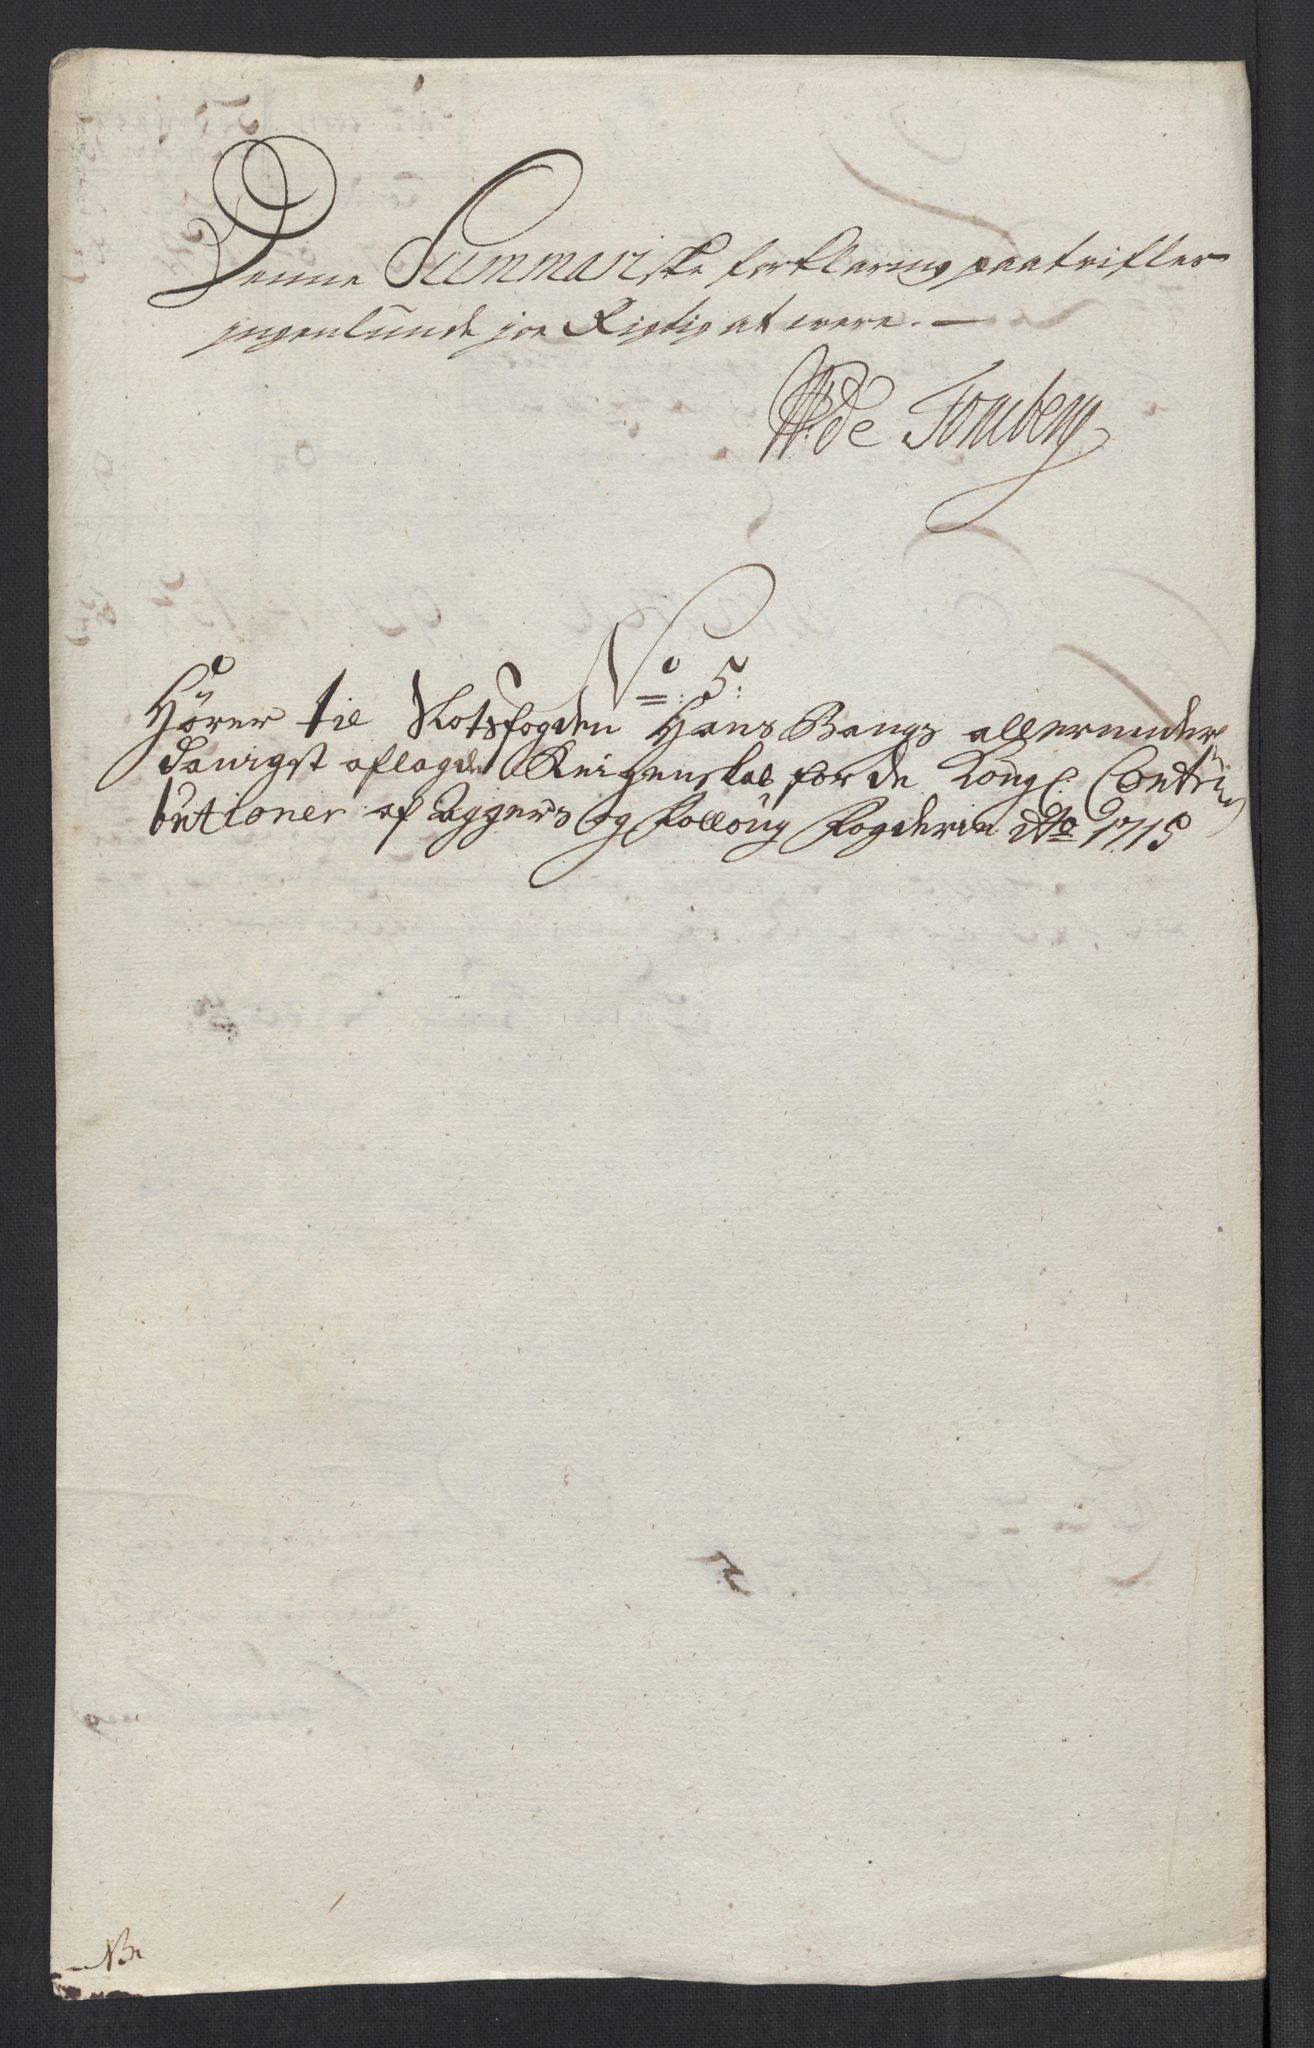 Denne Summariske forklaring paatvifler
ingenlunde joe Rigtig at were. –
W: de Tonsberg
No: 5:
Hører til Slotsfogden Hans Bangs allerunder
danigst aflagde Reigenskab for de Kongl: Contri
butioner af Aggers og Folloug Fogderie Ao 1715
NB